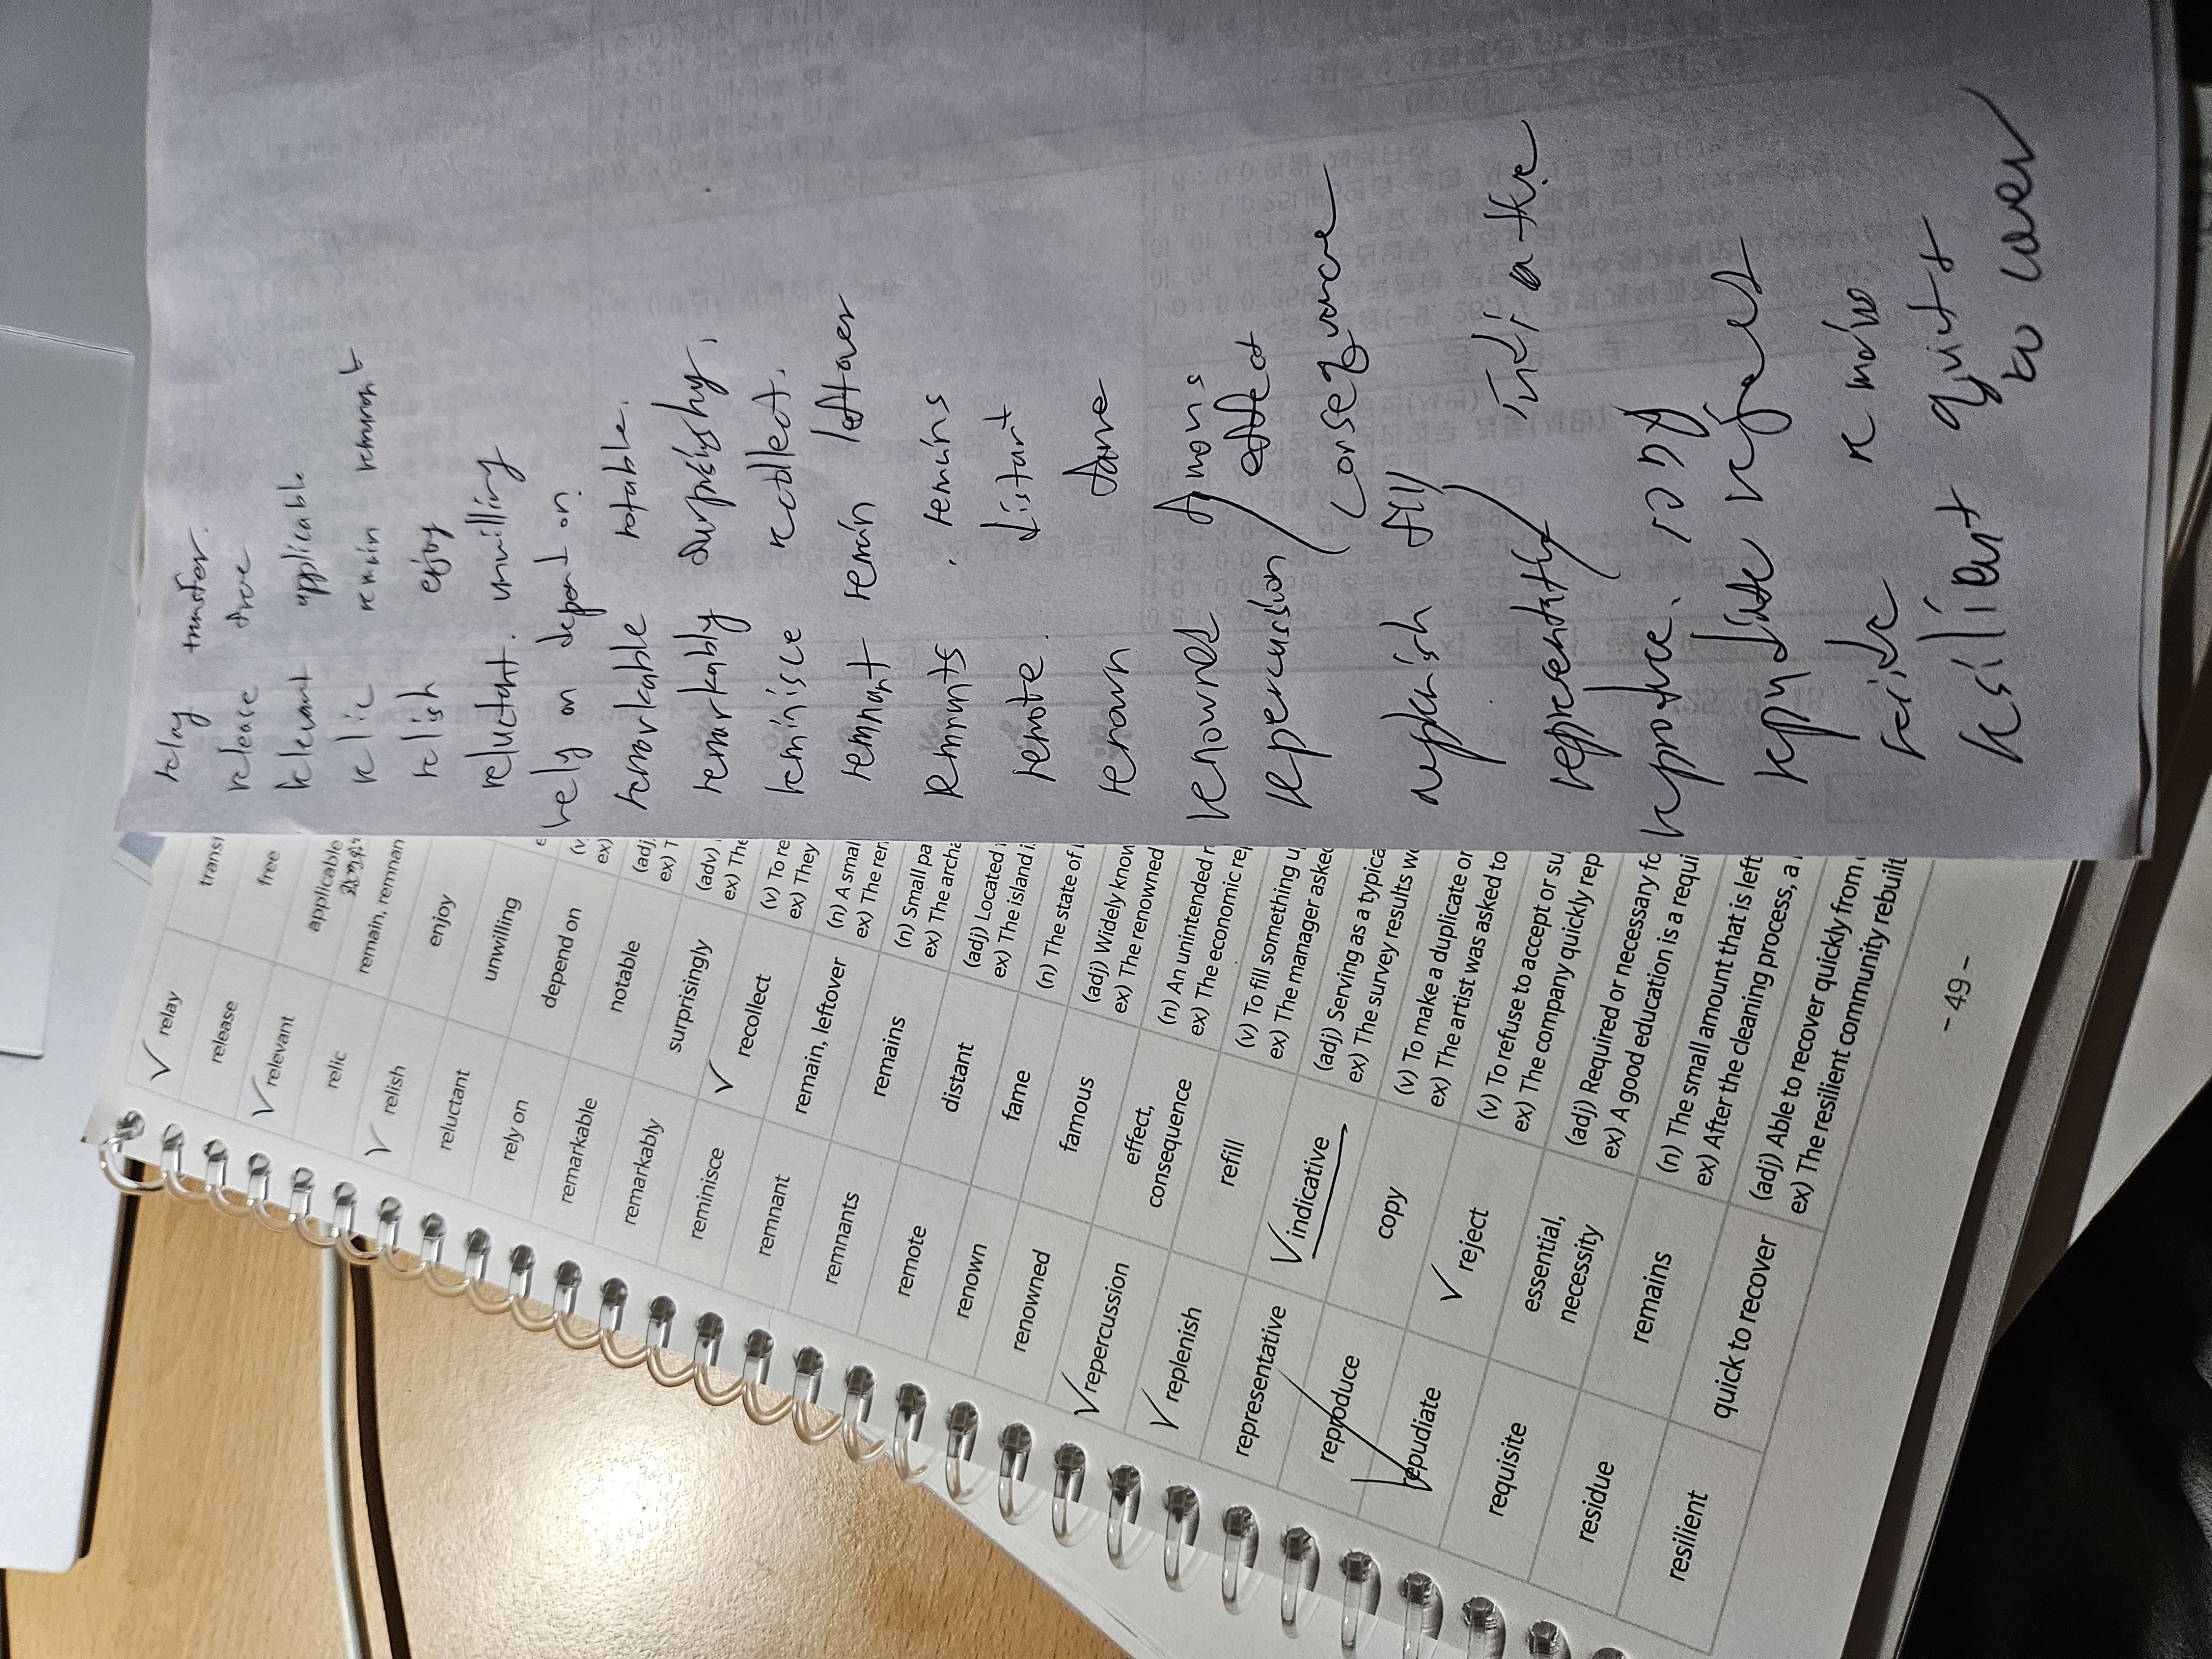 relay transfer.
release free
relevant applicable
relic remain remnant
relish enjoy
reluctant. unwilling
rely on depend on.
remarkable notable.
remarkably
reminisce recollect.
remnant remain leftover
remnants . remains
remote. distant
renown fame
renowned
repercussion / effect
( consequence
replenish
reproduce. copy
repudiate
remains
resilient
✓ relay transf
release free
✓ relevant applicable
relic remain, remnan
✓ relish enjoy
reluctant unwilling
rely on depend on (v
ex)
remarkable notable (adj
ex) T
remarkably surprisingly (adv)
ex) The
reminisce ✓ recollect (v) To re
ex) They
remnant remain, leftover (n) A smal
ex) The rer
remnants remains (n) Small pa
ex) The archa
remote distant (adj) Located
ex) The island i
renown fame (n) The state of
renowned famous (adj) Widely know
ex) The renowned
✓ repercussion effect,
consequence (n) An unintended
ex) The economic rep
✓ replenish refill (v) To fill something u
ex) The manager asked
representative ✓ indicative (adj) Serving as a typica
ex) The survey results we
reproduce copy (v) To make a duplicate or
ex) The artist was asked to
✓ repudiate ✓ reject (v) To refuse to accept or su
ex) The company quickly rep
requisite essential,
necessity (adj) Required or necessary fo
ex) A good education is a requi
residue remains (n) The small amount that is left
ex) After the cleaning process, a
resilient quick to recover (adj) Able to recover quickly from
ex) The resilient community rebuilt
- 49 -